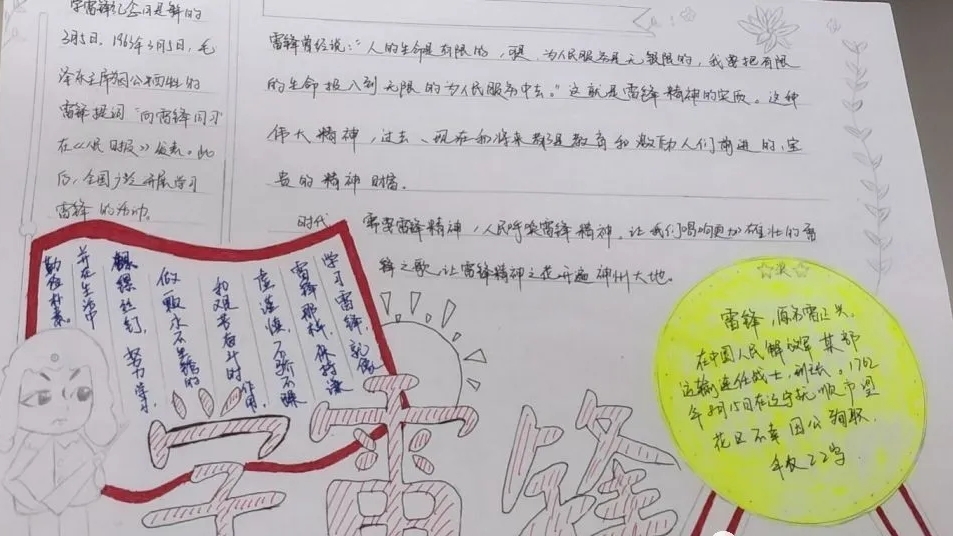 学雷锋纪念日是每年的
3月5日。1963年3月5日，毛
泽东主席为因公牺牲的
雷锋题词“向雷锋同习”
在《人民日报》发表。此
后，全国广泛开展学习
雷锋的活动。
雷锋曾经说：“人的生命是有限的，可是，为人民服务是无限的，我要把有限
的生命投入到无限的为人民服务中去。”这就是雷锋精神的实质。这种
伟大精神，过去、现在和将来都是教育和激励人们前进的，宝
贵的精神财富。
时代需要雷锋精神，人民呼唤雷锋精神。让我们唱响更加雄壮的雷
锋之歌，让雷锋精神之花开遍神州大地。
学习雷锋，就像
雷锋那样，保持谦
虚谨慎、不骄不躁
和艰苦奋斗的作用，
做点永不生锈的
螺丝钉，努力学习，
并在生活中
勤俭朴素。
学雷锋
雷锋，原名雷正兴，
在中国人民解放军某部
运输连任战士，副班长。1962
年8月15日在辽宁抚顺市望
花区不幸因公殉职，
年仅22岁